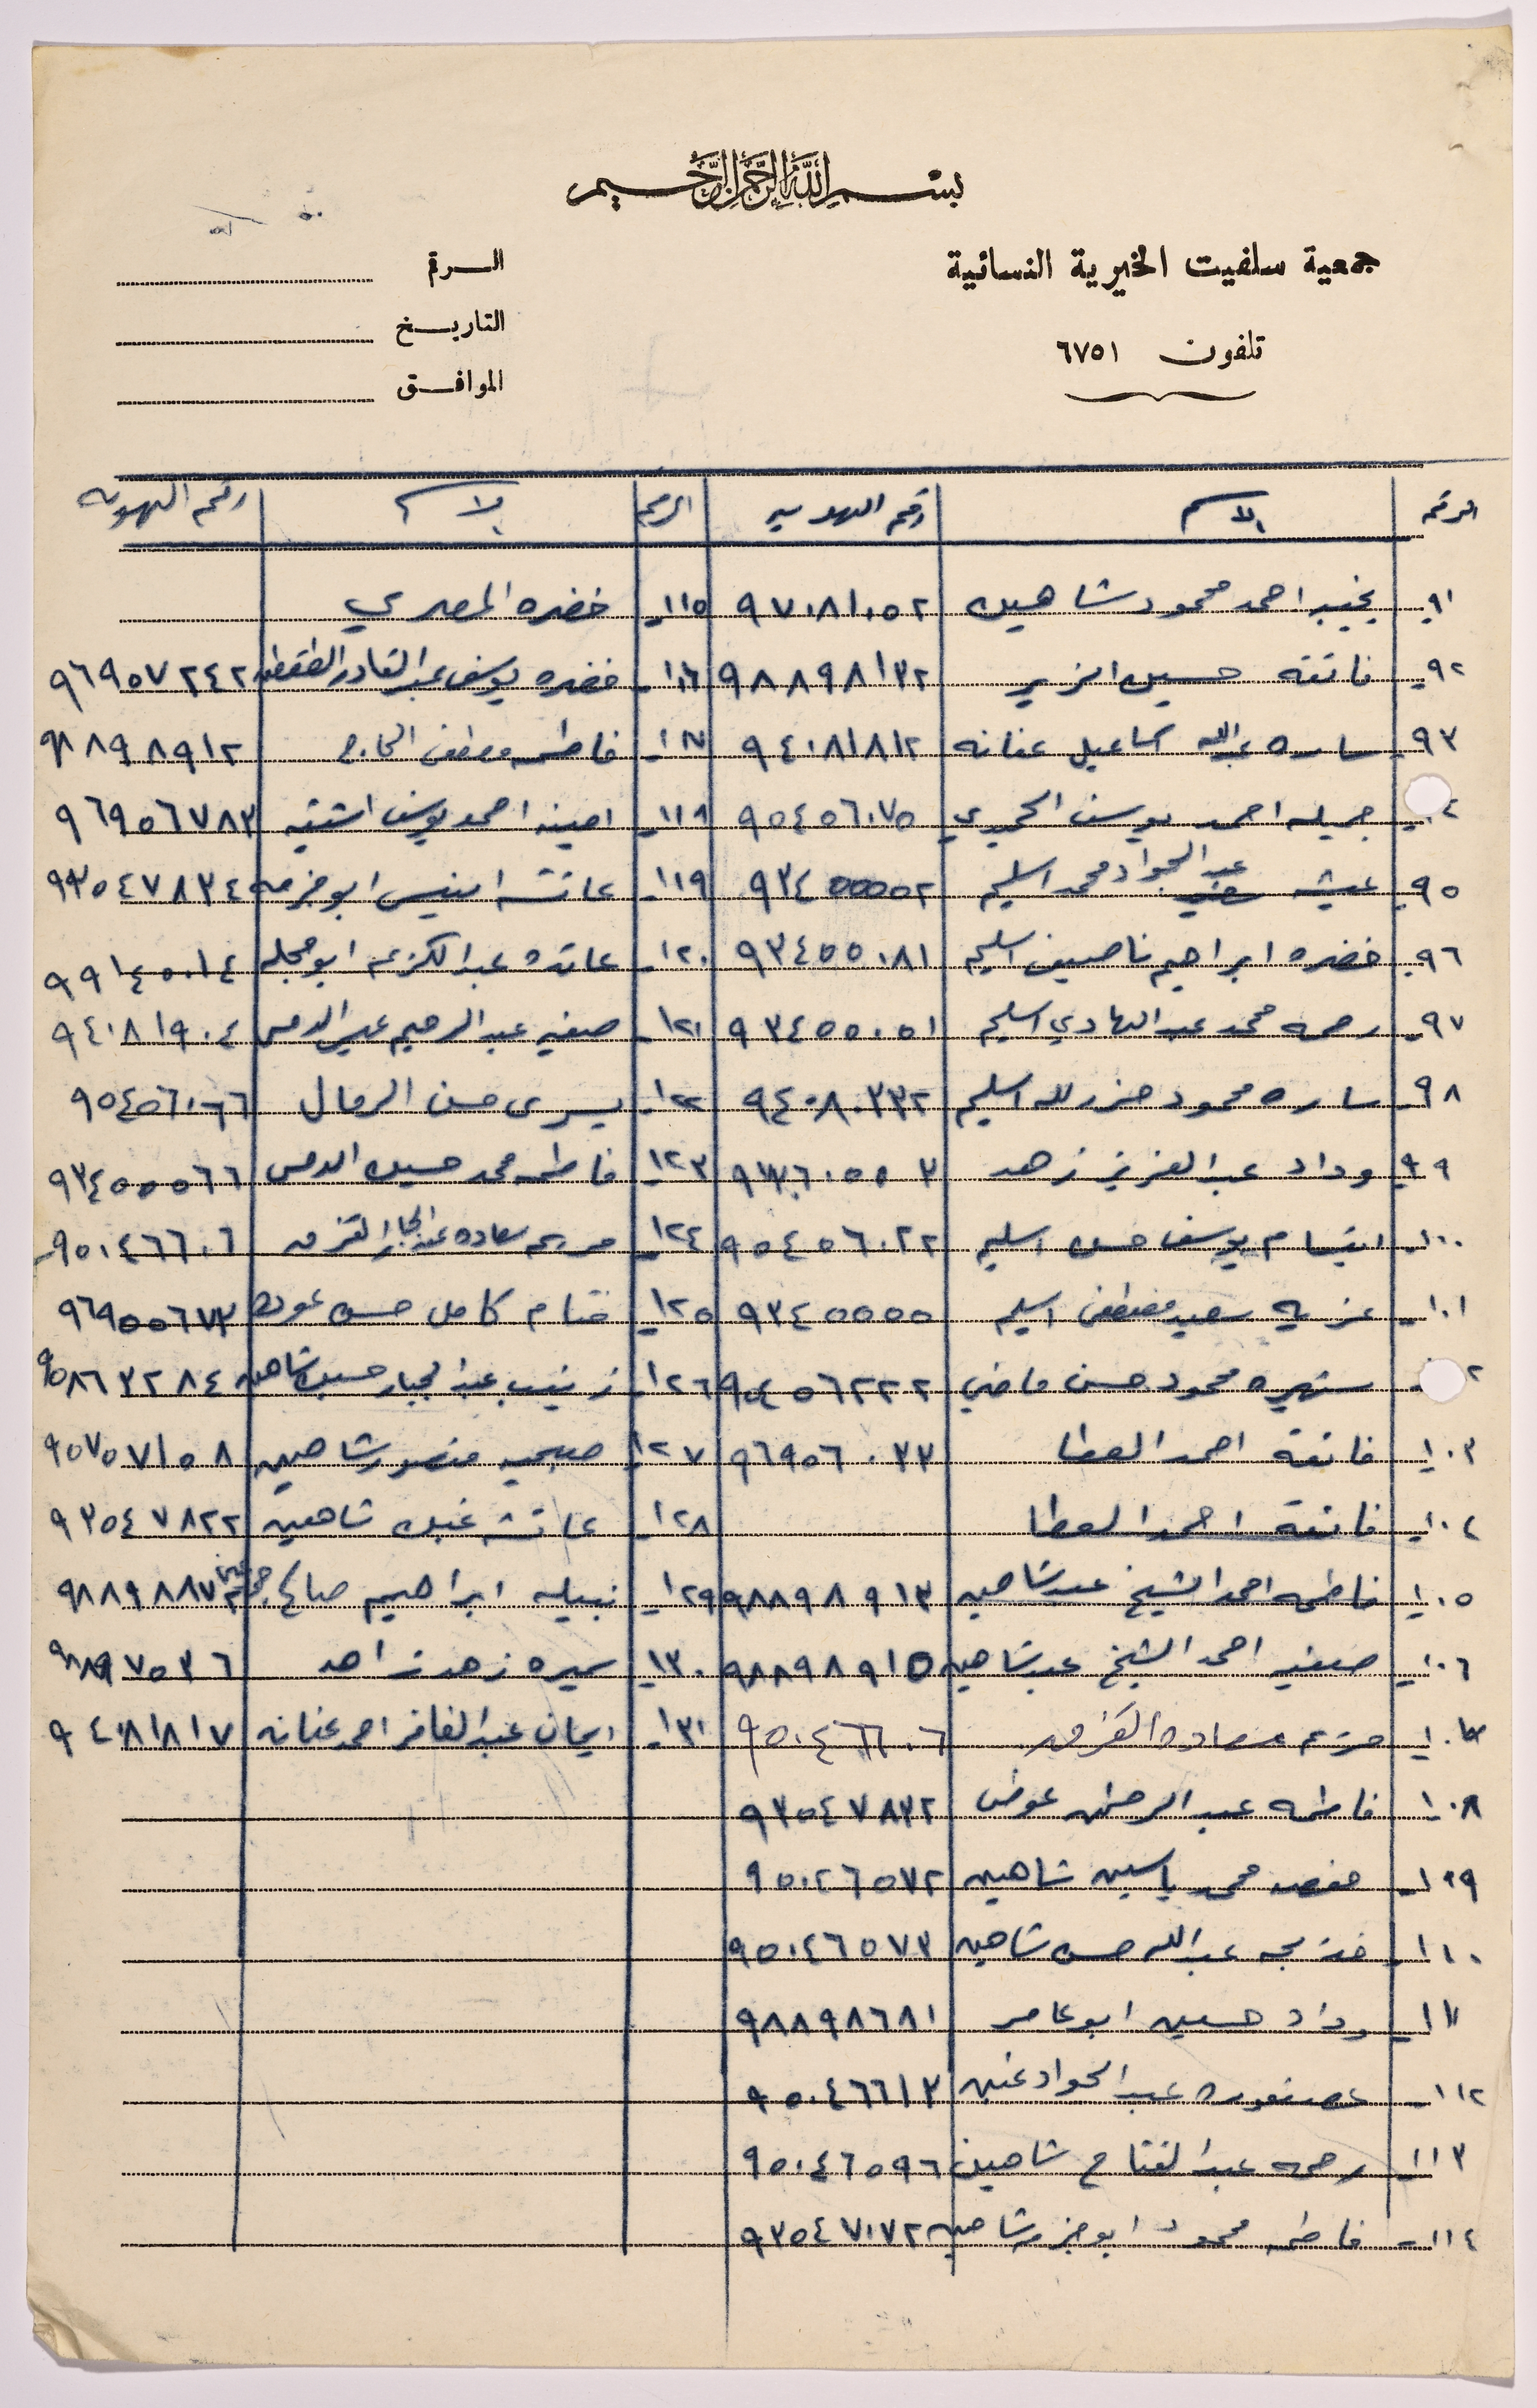 بسم الله الرحمن الرحيم
جمعية سلفيت الخيرية النسائية
الرقم
تلفون ٦٧٥١
التاريخ
الموافق
الرقم الاسم رقم الهوية الرقم الاسم رقم الهويه
٩١ـ نجيبه احمد محمود شاهين ٩٧٠٨١٠٥٢ ١١٥ـ خضره المصري
٩٢ـ فائقه حسين الزير ٩٨٨٩٨١٣٢ ١١٦ـ خضره يوسف عبد القادر ٩٦٩٥٧٢٤٢
٩٣ـ ساره عبدالله اسماعيل عنانه ٩٤٠٨١٨١٢ ١١٧ـ فاطمه مصطفى الحاج ٩٨٨٩٨٩١٢
٤ـ جميله احمد يوسف ٩٥٤٥٦٠٧٥ ١١٨ـ امينه احمد يوسف اشتيه ٩٦٩٥٦٧٨٣
٩٥ـ عيشه عبد الجواد محمد اسليم ٩٣٤٥٥٥٥٢ ١١٩ـ عائشه ٩٣٥٤٧٨٣٤
٩٦ـ خضره ابراهيم ناصيف اسليم ٩٣٤٥٥٠٨١ ١٢٠ـ عائده عبد الكريم ابو حجله ٩٩١٤٥٠١٤
٩٧ـ رحمه محمد عبد الهادي اسليم ٩٣٤٥٥٠٥١ ١٢١ـ صفيه عبد الرحيم ٩٤٠٨١٩٠٤
٩٨ـ ساره محمود اسليم ٩٤٠٨٠٣٣٢ ١٢٢ـ يسرى حسن الرمال ٩٥٤٥٦٠٦٦
٩٩ـ وداد عبد العزيز زهد ١٢٣ـ فاطمه محمد حسين ٩٣٤٥٥٥٦٦
١٠٠ـ ابتسام يوسف حسن اسليم ٩٥٤٥٦٠٢٢ ١٢٤ـ مريم سعاده عبد الجبار القزق ٩٥٠٤٦٦٠٦
١٠١ـ عزيه سعيد مصطفى اسليم ٩٣٤٥٥٥٥ ١٢٥ـ ختام كامل حسن عوده ٩٦٩٥٥٦٧٣
٢ـ شهيره محمود حسن ماضي ٩٥٤٥٦٢٢٢ ١٢٦ـ زينب عبد الجبار حسين شاهين ٩٥٨٦٣٢٨٤
١٠٣ـ فائقة احمد العطا ٩٦٩٥٦٠٣٣ ١٢٧ـ صبحيه منصور شاهين ٩٥٧٥٧١٥٨
١٠٤ـ فائقة احمد العطا ١٢٨ـ عائشه شاهين ٩٣٥٤٧٨٢٢
١٠٥ـ فاطمه احمد الشيخ عبد شاهين ٩٨٨٩٨٩١٣ ١٢٩ـ نبيله ابراهيم صالح ٩٨٨٩٨٨٧
١٠٦ـ صفيه احمد الشيخ عبد شاهين ٩٨٨٩٨٩١٥ ١٣٠ـ سميره زهد زاهد ٩٨٨٩٧٥٣٦
١٠٧ـ مريم سعاده القزق ٩٥٠٤٦٦٠٦ ١٣١ـ ايمان عبد الغافر احمد عنانه ٩٤٠٨١٨١٧
١٠٨ـ فاطمه عبد الرحمن عوض ٩٣٥٤٧٨٣٢
١٠٩ـ محمد ياسين شاهين ٩٥٠٤٦٥٧٢
١١٠ـ خديجه عبدالله حسن شاهين ٩٥٠٤٦٥٧٣
١١١ـ وداد حسين ابو عامر ٩٨٨٩٨٦٨١
١١٢ـ عصفوره عبد الجواد ٩٥٠٤٦٦١٣
١١٣ـ رحمه عبد الفتاح شاهين ٩٥٠٤٦٥٩٦
١١٤ـ فاطمه محمود شاهين ٩٣٥٤٧٠٧٢